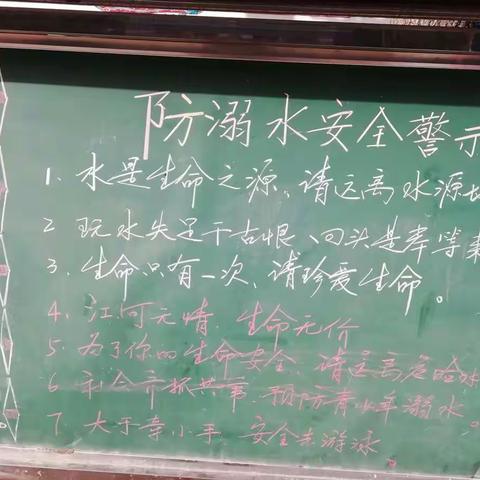 防溺水安全警示
1. 水是生命之源,请远离水源
2 玩水失足千古恨、回头是岸等
3. 生命只有一次、请珍爱生命。
4、江河无情. 生命无价
5、为了你的生命安全、请远离危险水
6 利令齐抓共事、预防青少年溺水。
7、大手牵小手、安全去游泳.